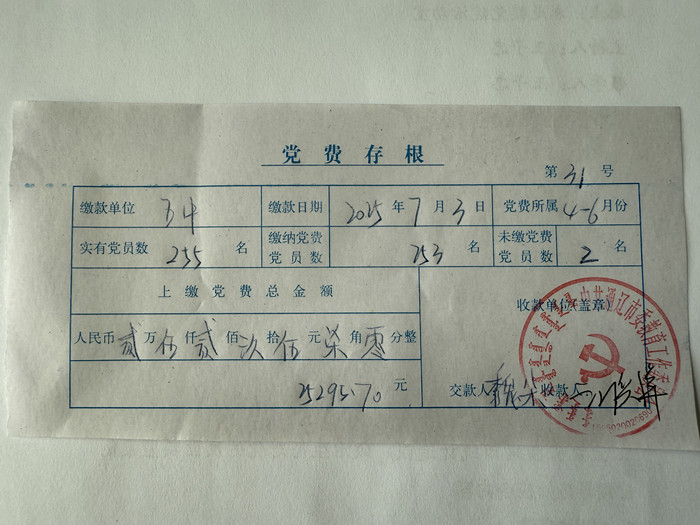 党费存根
第 31 号
缴款单位 五中 缴款日期 2025 年 7 月 3 日 党费所属 4-6 月份
实有党员数 255 名 缴纳党费党员数 253 名 未缴党费党员数 2 名
上缴党费总金额
收款单位(盖章)
人民币 贰 万 伍 仟 贰 佰 玖 拾 伍 元 柒 角 零 分整
25295.70 元
交款人 收款人
中共通辽市委教育工作